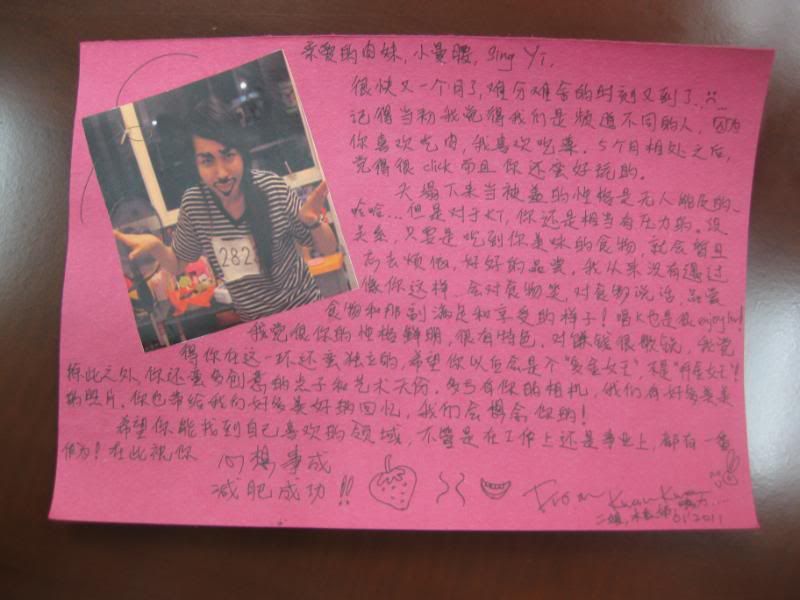 亲爱的肉妹,小蔓腰,Sing Yi,
很快又一个月了,难分难舍的时刻又到了...
记得当初我觉得我们是频道不同的人,因为
你喜欢吃肉,我喜欢吃菜。5个月相处之后,
觉得很click而且你还蛮好玩的。
天塌下来当被盖的性格是无人能及的、
哈哈...但是对于KT,你还是相当有压力的。没
关系,只要是吃到你美味的食物,就会暂且
忘去烦恼,好好的品尝。我从来没有遇过
像你这样,会对食物笑,对食物说话,品尝
食物和那副满足和享受的样子!唱K也是很enjoy
我觉很你的性格鲜明,很有特色。对赚钱很敏锐,我觉
得你在这一环还蛮独立的,希望你以后会是个"
除此之外,你还蛮多创意的点子和艺术天份。多亏有你的相机,我们有好多美美
的照片。你也带给我们好多美好的回忆,我们会想念你的!
希望你能找到自己喜欢的领域,不管是在工作上还是事业上,都有一番
作为!在此祝你
心想事成
减肥成功!!
From
01'2011
282